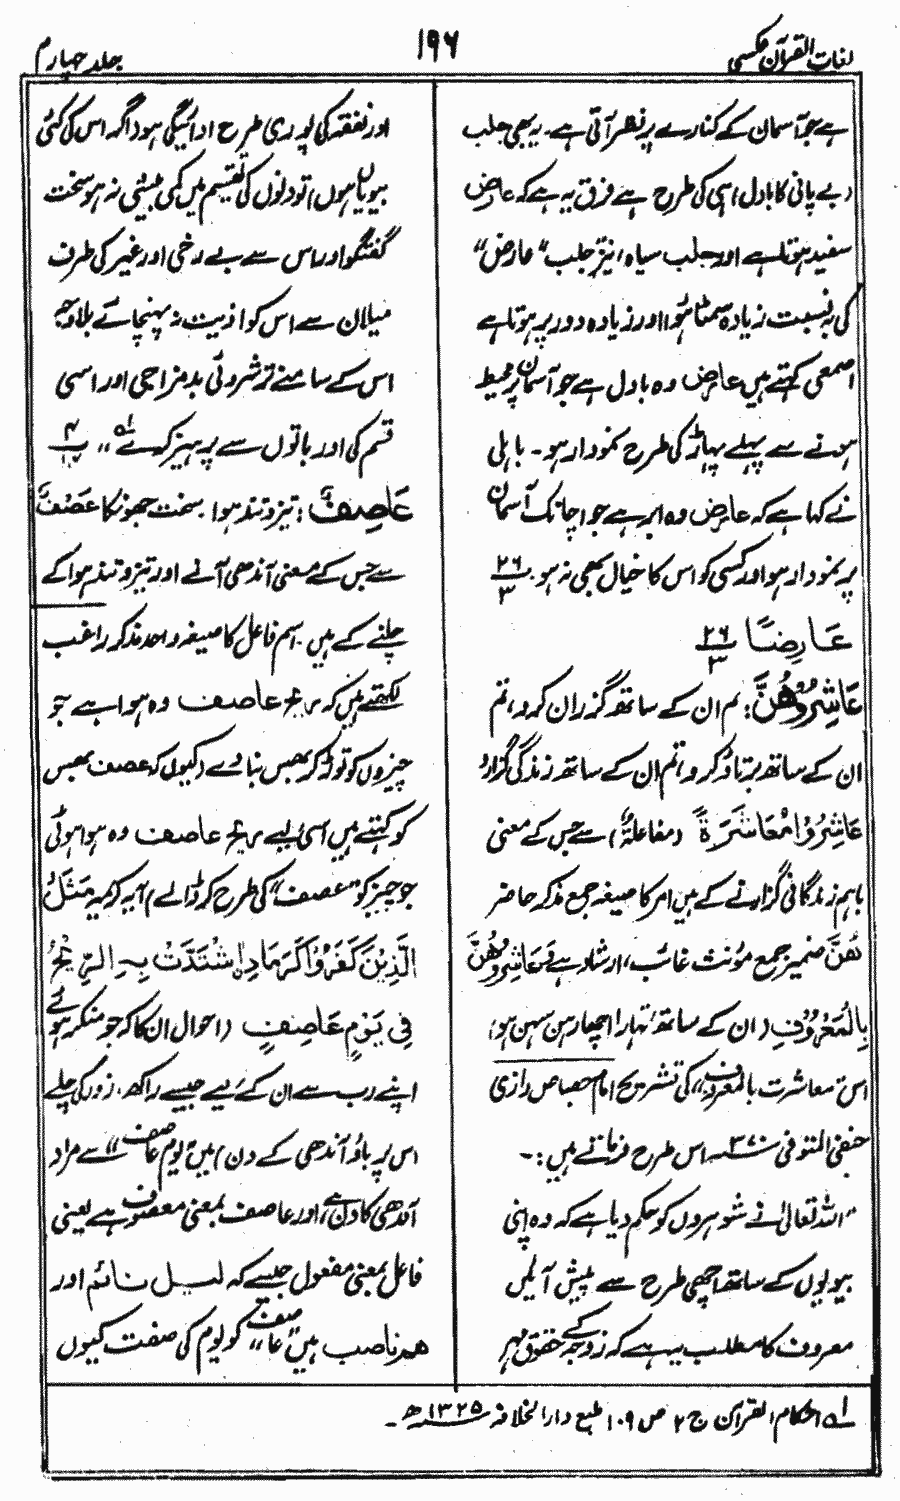 لغات القرآن عکسی
۱۹۶
جلد چہارم
ہے جو آسمان کے کنارے پر نظر آتی ہے۔ یہ بھی جلب
(بے پانی کا بادل) اسی کی طرح ہے فرق یہ ہے کہ عارض
سفید ہوتا ہے اور جلب سیاہ، نیز جلب "عارض"
کی بہ نسبت زیادہ سمٹا ہوا اور زیادہ دور پر ہوتا ہے
اصمعی کہتے ہیں عارض وہ بادل ہے جو آسمان پر محیط
ہونے سے پہلے پہاڑ کی طرح نمودار ہو۔ باہلی
نے کہا ہے کہ عارض وہ ابر ہے جو اچانک آسمان
پر نمودار ہو اور کسی کو اس کا خیال بھی نہ ہو۔ ۲۶/۳
عَارِضًا ۲۶/۳
عَاشِرُوْھُنَّ: تم ان کے ساتھ گزران کرو، تم
ان کے ساتھ برتاؤ کرو، تم ان کے ساتھ زندگی گزارو
عَاشِرُوْا مُعَاشَرَۃً (مفاعلۃ) سے جس کے معنی
باہم زندگانی گزارنے کے ہیں امر کا صیغہ جمع مذکر حاضر
ھُنَّ ضمیر جمع مؤنث غائب، ارشاد ہے وَعَاشِرُوْھُنَّ
بِالْمَعْرُوْفِ (ان کے ساتھ تمہارا اچھا رہن سہن ہو)
اس معاشرت بالمعروف" کی تشریح امام جصاص رازی
حنفی المتوفی ۳۷۰ھ اس طرح فرماتے ہیں:۔
"اللہ تعالیٰ نے شوہروں کو حکم دیا ہے کہ وہ اپنی
بیویوں کے ساتھ اچھی طرح سے پیش آئیں
معروف کا مطلب یہ ہے کہ زوجہ کے حقوق مہر
اور نفقہ کی پوری طرح ادائیگی ہو (اگر اس کی کئی
بیویاں ہوں) تو دنوں کی تقسیم میں کمی بیشی نہ ہو سخت
گفتگو اور اس سے بے رخی اور غیر کی طرف
میلان سے اس کو اذیت نہ پہنچائے بلاوجہ
اس کے سامنے ترشروئی بدمزاجی اور اسی
قسم کی اور باتوں سے پرہیز کرے" ۱؎ ۴
عَاصِفٌ: تیز و تند ہوا۔ سخت جھونکا عَصْفٌ
سے جس کے معنی آندھی آنے اور تیز و تند ہوا کے
چلنے کے ہیں۔ اسم فاعل کا صیغہ واحد مذکر راغب
لکھتے ہیں کہ ریح عاصف وہ ہوا ہے جو
چیزوں کو توڑ کر بھس بنا دے (کیوں کہ عصف بھس
کو کہتے ہیں) اسی لیے ریح عاصف وہ ہوا ہوئی
جو چیز کو "عصف" کی طرح کر ڈالے، آیہ کریمہ مَثَلُ
الَّذِیْنَ کَفَرُوْا کَرَمَادِ اشْتَدَّتْ بِہِ الرِّیْحُ
فِیْ یَوْمٍ عَاصِفٍ (احوال ان کا کہ جو منکر ہوئے
اپنے رب سے ان کے کیے جیسے راکھ، زور کی چلے
اس پر باؤ آندھی کے دن) میں "یوم عاصف" سے مراد
آندھی کا دن ہے، اور عاصف بمعنی معصوف ہے یعنی
فاعل بمعنی مفعول جیسے کہ لیل نائم اور
ھم ناصب ہیں "عاصف" کو یوم کی صفت کیوں
۱؎ احکام القرآن ج ۲ ص ۱۰۹ طبع دارالخلافہ ۱۳۲۵ھ۔